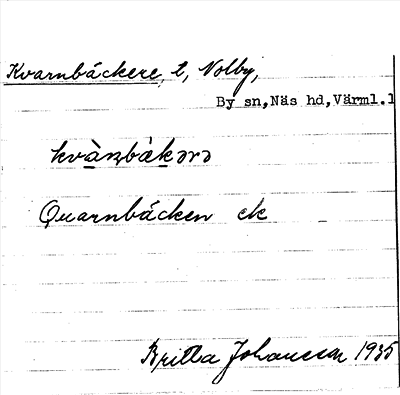 Kvarnbäckere, t, Nolby,
By sn,Näs hd,Värml.l
kvà̱ṇbàk̲ərə
Quarnbäcken ek
Britta Johansson 1935